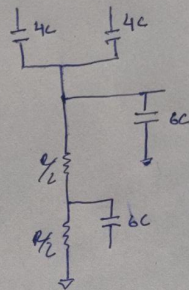 4C 4C
6C
R/2
6C
R/2